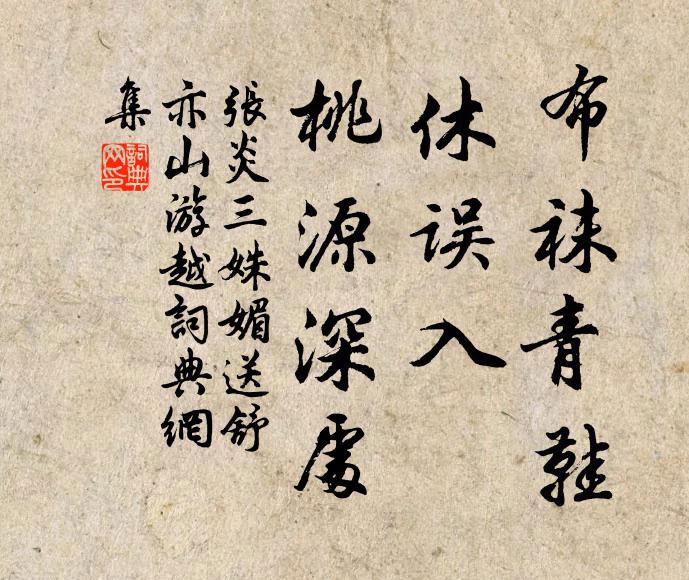 布袜青鞋
休误入
桃源深處
張炎三姝媚送舒
亦山游越詞典網
集
詞典
网印